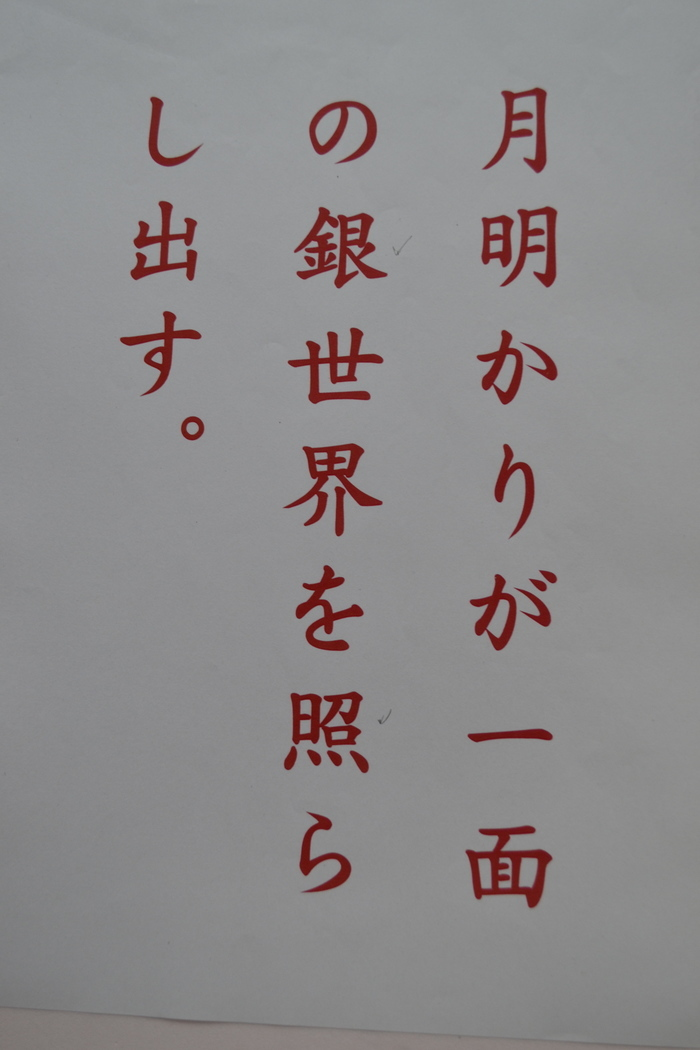 月明かりが一面
の銀世界を照ら
し出す。